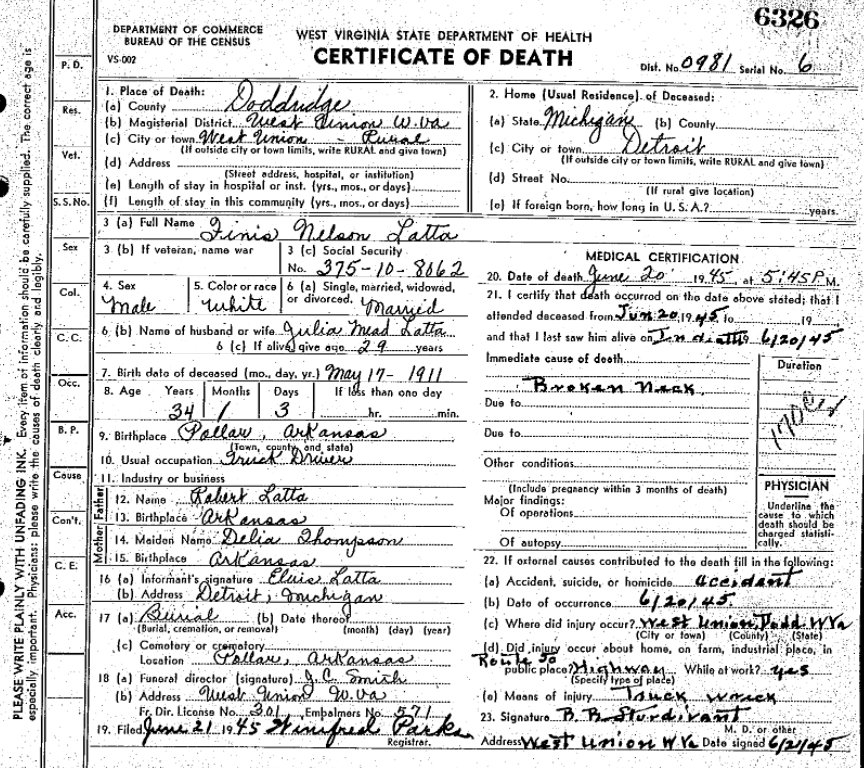 6326
DEPARTMENT OF COMMERCE
BUREAU OF THE CENSUS
VS-002
WEST VIRGINIA STATE DEPARTMENT OF HEALTH
CERTIFICATE OF DEATH
Dist. No. 0981 Serial No. 6
PLEASE WRITE PLAINLY WITH UNFADING INK. Every item of information should be carefully supplied. The correct age is
especially important. Physicians: please write the causes of death clearly and legibly.
P. D.
Res.
Vet.
S. S. No.
Sex
Col.
C. C.
Occ.
B. P.
Cause
Con't.
C. E.
Acc.
1. Place of Death:
(a) County Doddridge
(b) Magisterial District West Union W.Va
(c) City or town West Union - Rural
(If outside city or town limits, write RURAL and give town)
(d) Address
(Street address, hospital, or institution)
(e) Length of stay in hospital or inst. (yrs., mos., or days)
(f) Length of stay in this community (yrs., mos., or days)
2. Home (Usual Residence) of Deceased:
(a) State Michigan (b) County
(c) City or town Detroit
(If outside city or town limits, write RURAL and give town)
(d) Street No.
(If rural give location)
(e) If foreign born, how long in U. S. A.? years.
3 (a) Full Name Finis Nelson Latta
3 (b) If veteran, name war
3 (c) Social Security
No. 375-10-8062
4. Sex
Male
5. Color or race
White
6 (a) Single, married, widowed,
or divorced. Married
6 (b) Name of husband or wife Julia Mead Latta
6 (c) If alive, give age 29 years
7. Birth date of deceased (mo., day, yr.) May 17- 1911
8. Age Years Months Days If less than one day
34 1 3 hr. min.
9. Birthplace Pollar, Arkansas
(Town, county, and state)
10. Usual occupation Truck Driver
11. Industry or business
Father
12. Name Robert Latta
13. Birthplace Arkansas
Mother
14. Maiden Name Delia Thompson
15. Birthplace Arkansas
16 (a) Informant's signature Elvis Latta
(b) Address Detroit, Michigan
17 (a) Burial (b) Date thereof
(Burial, cremation, or removal) (month) (day) (year)
(c) Cemetery or crematory
Location Pollar, Arkansas
18 (a) Funeral director (signature) J. C. Smith
(b) Address West Union W.Va
Fr. Dir. License No. 301 Embalmers No. 571
19. Filed June 21 1945 Winifred Parks
Registrar.
MEDICAL CERTIFICATION
20. Date of death June 20 1945, at 5:45 P M.
21. I certify that death occurred on the date above stated; that I
attended deceased from Jun 20, 1945 to 19
and that I last saw him alive on In death 6/20/45
Immediate cause of death
Broken Neck
Due to
Due to
Other conditions
(Include pregnancy within 3 months of death)
Major findings:
Of operations
Of autopsy
Duration
PHYSICIAN
Underline
the cause to
which
death should be
charged statisti-
cally.
22. If external causes contributed to the death fill in the following:
(a) Accident, suicide, or homicide accident
(b) Date of occurrence 6/20/45.
(c) Where did injury occur? West Union, Dodd W Va
(City or town) (County) (State)
(d) Did injury occur about home, on farm, industrial place, in
Route 50
public place? Highway While at work? yes
(Specify type of place)
(e) Means of injury Truck wreck
23. Signature B. B. Sturdivant
M. D. or other
Address West Union W Va Date signed 6/21/45